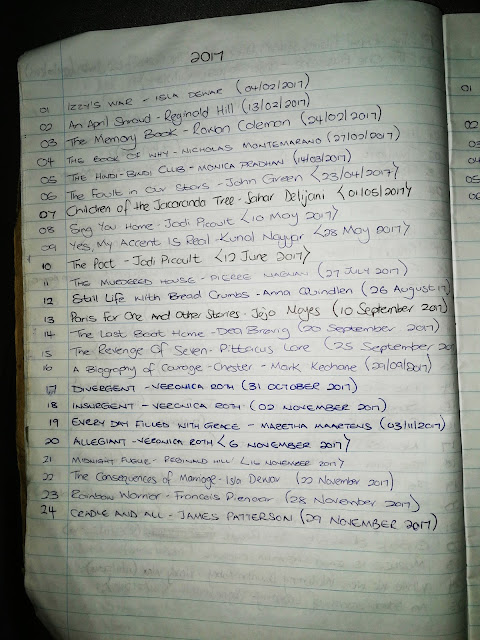 2017
01 IZZY'S WAR - ISLA DEWAR (04/02/2017)
02 An April Shroud - Reginold Hill (13/02/2017)
03 The Memory Book - Rowan Coleman (24/02/2017)
04 THE BOOK OF WHY - NICHOLAS MONTEMARANO (27/02/2017)
05 THE HINDI-BINDI CLUB - MONICA PRADHAN (14/03/2017)
06 The Fault in Our Stars - John Green <23/04/2017>
07 Children of the Jacaranda Tree - Sahar Delijani <01/05/2017>
08 Sing You Home - Jodi Picoult <10 May 2017>
09 Yes, My Accent Is Real - Kunal Nayyar <28 May 2017>
10 The Pact - Jodi Picoult <12 June 2017>
11 THE MURDERED HOUSE - PIERRE MAGNAN (27 JULY 2017)
12 Still Life With Bread Crumbs - Anna Quindlen (26 August 17)
13 Paris For One And Other Stories - Jojo Moyes (10 September 2017)
14 The Last Boat Home - Dea Brøvig (20 September 2017)
15 The Revenge Of Seven - Pittacus Lore (25 September 20
16 A Biography of Courage - Chester - Mark Keohane (29/09/2017)
17 DIVERGENT - VERONICA ROTH (31 OCTOBER 2017)
18 INSURGENT - VERONICA ROTH (02 NOVEMBER 2017)
19 EVERY DAY FILLED WITH GRACE - MARETHA MAARTENS (03/11/2017)
20 ALLEGIANT - VERONICA ROTH <6 NOVEMBER 2017>
21 MIDNIGHT FUGUE - REGINALD HILL <16 NOVEMBER 2017>
22 The Consequences of Marriage - Isla Dewar (22 November 2017)
23 Rainbow Warrior - Francois Pienaar (28 November 2017)
24 CRADLE AND ALL - JAMES PATTERSON (29 NOVEMBER 2017)
01
02
03
04
05
06